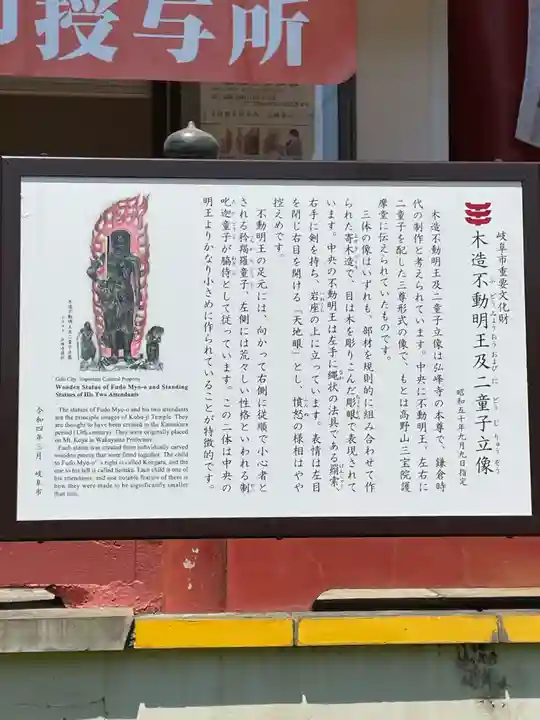 授写所
岐阜市重要文化財
木造不動明王及二童子立像
もくぞうふどうみょうおうおよびにどうじりゅうぞう
昭和五十年九月九日指定
木造不動明王及二童子立像は弘峰寺の本尊で、鎌倉時
代の制作と考えられています。中央に不動明王、左右に
二童子を配した三尊形式の像で、もとは高野山三宝院護
摩堂に伝えられていたものです。
三体の像はいずれも、部材を規則的に組み合わせて作
られた寄木造で、目は木を彫りこんだ彫眼で表現されて
います。中央の不動明王は左手に縄状の法具である羂索、
右手に剣を持ち、岩座の上に立っています。表情は左目
を閉じ右目を開ける「天地眼」とし、憤怒の様相はやや
控えめです。
不動明王の足元には、向かって右側に従順で小心者と
される矜羯羅童子、左側には荒々しい性格といわれる制
吒迦童子が脇侍として従っています。この二体は中央の
明王よりかなり小さめに作られていることが特徴的です。
木造不動明王及二童子立像
Gifu City: Important Cultural Property
Wooden Statue of Fudo Myo-o and Standing
Statues of His Two Attendants
The statues of Fudo Myo-o and his two attendants
are the principle images of Kubu-ji Temple. They
are thought to have been created in the Kamakura
period (13th century). They were originally placed
on Mt. Koya in Wakayama Prefecture.
Each statue was created from individually carved
wooden pieces that were fitted together. The child
to Fudo Myo-o's right is called Kongara, and the
one to his left is called Seitaka. Each child is one of
his attendants, and one notable feature of them is
how they were made to be significantly smaller
than him.
令和四年三月 岐阜市